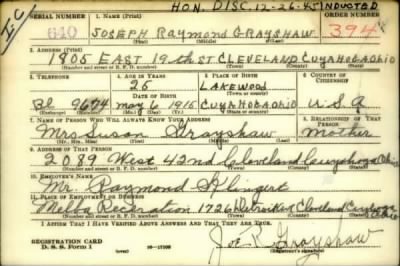 HON. DISC. 12-26-45 INDUCTED
SERIAL NUMBER 1. NAME (Print) ORDER NUMBER
I C 640 JOSEPH Raymond GRAYSHAW 394
2. ADDRESS (Print)
1805 EAST 19th ST CLEVELAND CUYAHOGA OHIO
(Number and street or R. F. D. number) (Town) (County) (State)
3. TELEPHONE 4. AGE IN YEARS 5. PLACE OF BIRTH 6. COUNTRY OF CITIZENSHIP
25 LAKEWOOD
DATE OF BIRTH
9674 may 6 1915 CUYAHOGA OHIO U.S.A
7. NAME OF PERSON WHO WILL ALWAYS KNOW YOUR ADDRESS 8. RELATIONSHIP OF THAT PERSON
Mrs Susan Grayshaw Mother
(Mr., Mrs., Miss) (First) (Middle) (Last)
9. ADDRESS OF THAT PERSON
2089 West 42nd Cleveland Cuyahoga Ohio
(Number and street or R. F. D. number) (Town) (County) (State)
10. EMPLOYER'S NAME
Mr. Raymond
11. PLACE OF EMPLOYMENT OR BUSINESS
Melba Recreation 1726 Cleveland Cuyahoga
(Number and street or R. F. D. number) (Town) (County) (State)
I AFFIRM THAT I HAVE VERIFIED ABOVE ANSWERS AND THAT THEY ARE TRUE.
REGISTRATION CARD
D. S. S. Form 1 Joe R. Grayshaw
(Registrant's signature)